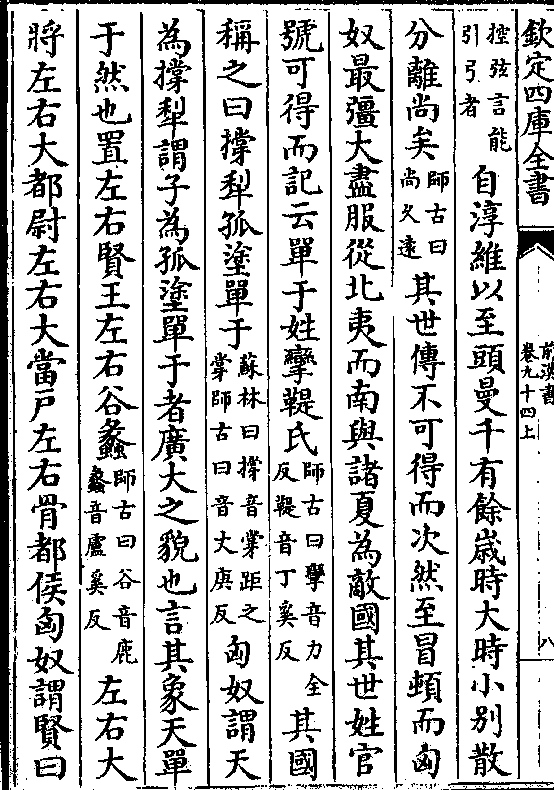 欽定四庫全書
前漢書
卷九十四上
八
控弦言能
引弓者
自淳維以至頭曼千有餘歲時大時小別散
分離尚矣
師古曰
尚久遠
其世傳不可得而次然至冒頓而匈
奴最彊大盡服從北夷而南與諸夏為敵國其世姓官
號可得而記云單于姓攣鞮氏
師古曰攣音力全
反鞮音丁奚反
其國
稱之曰撐犂孤塗單于
蘇林曰撐音掌距之
掌師古曰音丈庚反
匈奴謂天
為撐犂謂子為孤塗單于者廣大之貌也言其象天單
于然也置左右賢王左右谷蠡
師古曰谷音鹿
蠡音盧奚反
左右大
將左右大都尉左右大當戶左右骨都侯匈奴謂賢曰